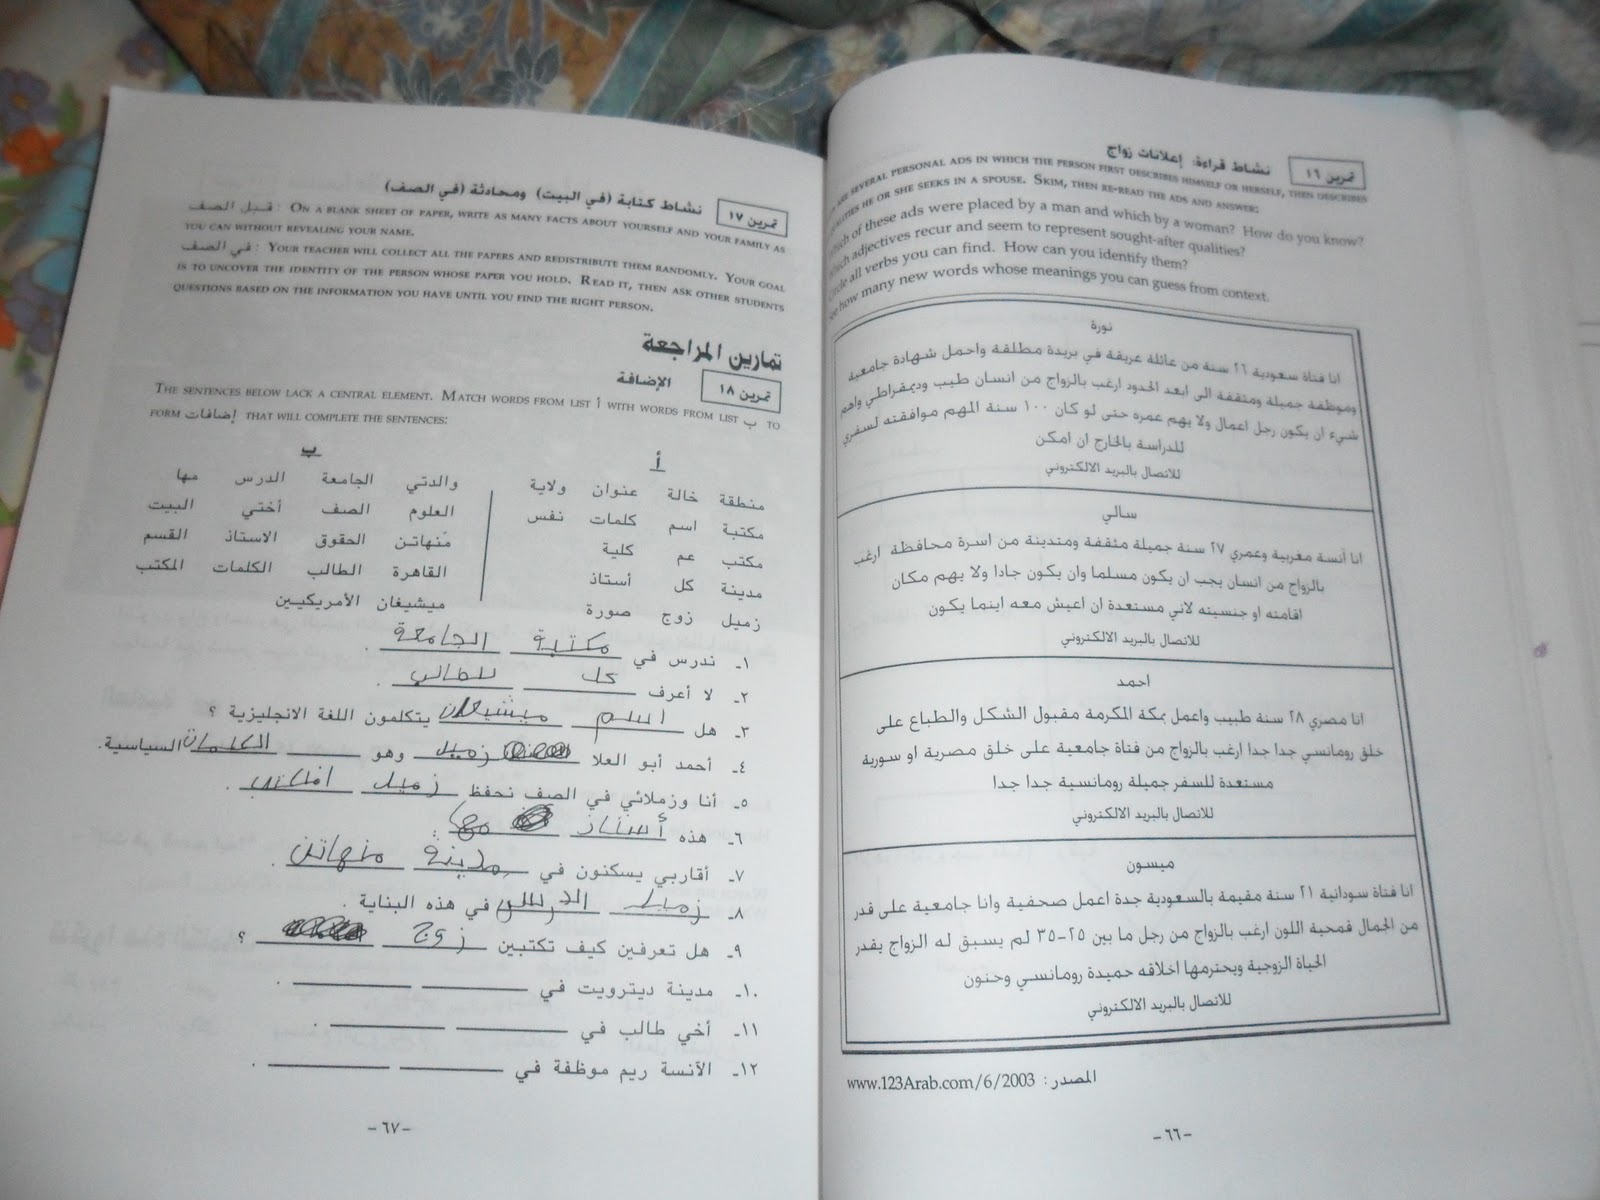 تمرين ١٦ نشاط قراءة: إعلانات زواج
ARE SEVERAL PERSONAL ADS IN WHICH THE PERSON FIRST DESCRIBES HIMSELF OR HERSELF, THEN DESCRIBES
HE OR SHE SEEKS IN A SPOUSE. SKIM, THEN RE-READ THE ADS AND ANSWER:
of these ads were placed by a man and which by a woman? How do you know?
adjectives recur and seem to represent sought-after qualities?
all verbs you can find. How can you identify them?
how many new words whose meanings you can guess from context.
نورة
انا فتاة سعودية ٢٦ سنة من عائلة عريقة في بريدة مطلقة واحمل شهادة جامعية
وموظفة جميلة ومثقفة الى ابعد الحدود ارغب بالزواج من انسان طيب وديمقراطي واهم
شيء ان يكون رجل اعمال ولا يهم عمره حتى لو كان ١٠٠ سنة المهم موافقته لسفري
للدراسة بالخارج ان امكن
للاتصال بالبريد الالكتروني
سالي
انا أنسة مغربية وعمري ٢٧ سنة جميلة مثقفة ومتدينة من اسرة محافظة ارغب
بالزواج من انسان يجب ان يكون مسلما وان يكون جادا ولا يهم مكان
اقامته او جنسيته لاني مستعدة ان اعيش معه اينما يكون
للاتصال بالبريد الالكتروني
احمد
انا مصري ٢٨ سنة طبيب واعمل بمكة المكرمة مقبول الشكل والطباع على
خلق رومانسي جدا جدا ارغب بالزواج من فتاة جامعية على خلق مصرية او سورية
مستعدة للسفر جميلة رومانسية جدا جدا
للاتصال بالبريد الالكتروني
ميسون
انا فتاة سودانية ٢١ سنة مقيمة بالسعودية جدة اعمل صحفية وانا جامعية على قدر
من الجمال قمحية اللون ارغب بالزواج من رجل ما بين ٢٥-٣٥ لم يسبق له الزواج يقدر
الحياة الزوجية ويحترمها اخلاقه حميدة رومانسي وحنون
للاتصال بالبريد الالكتروني
المصدر: www.123Arab.com/6/2003
-٦٦-
تمرين ١٧ نشاط كتابة (في البيت) ومحادثة (في الصف)
قبل الصف: ON A BLANK SHEET OF PAPER, WRITE AS MANY FACTS ABOUT YOURSELF AND YOUR FAMILY AS
YOU CAN WITHOUT REVEALING YOUR NAME.
في الصف: YOUR TEACHER WILL COLLECT ALL THE PAPERS AND REDISTRIBUTE THEM RANDOMLY. YOUR GOAL
IS TO UNCOVER THE IDENTITY OF THE PERSON WHOSE PAPER YOU HOLD. READ IT, THEN ASK OTHER STUDENTS
QUESTIONS BASED ON THE INFORMATION YOU HAVE UNTIL YOU FIND THE RIGHT PERSON.
تمارين المراجعة
تمرين ١٨ الإضافة
THE SENTENCES BELOW LACK A CENTRAL ELEMENT. MATCH WORDS FROM LIST أ WITH WORDS FROM LIST ب TO
FORM إضافات THAT WILL COMPLETE THE SENTENCES:
أ ب
منطقة خالة عنوان ولاية والدتي الجامعة الدرس مها
مكتبة اسم كلمات نفس العلوم الصف أختي البيت
مكتب عم كلية منهاتن الحقوق الاستاذ القسم
مدينة كل أستاذ القاهرة الطالب الكلمات المكتب
زميل زوج صورة ميشيغان الأمريكيين
١- ندرس في مكتبة الجامعة .
٢- لا أعرف كل للطالب .
٣- هل اسم ميشيغان يتكلمون اللغة الانجليزية ؟
٤- أحمد أبو العلا زميل وهو الكلمات السياسية.
٥- أنا وزملائي في الصف نحفظ زميل .
٦- هذه أستاذ مها
٧- أقاربي يسكنون في مدينة منهاتن .
٨- زميل الدرس في هذه البناية .
٩- هل تعرفين كيف تكتبين زوج ؟
١٠- مدينة ديترويت في .
١١- أخي طالب في .
١٢- الآنسة ريم موظفة في .
-٦٧-